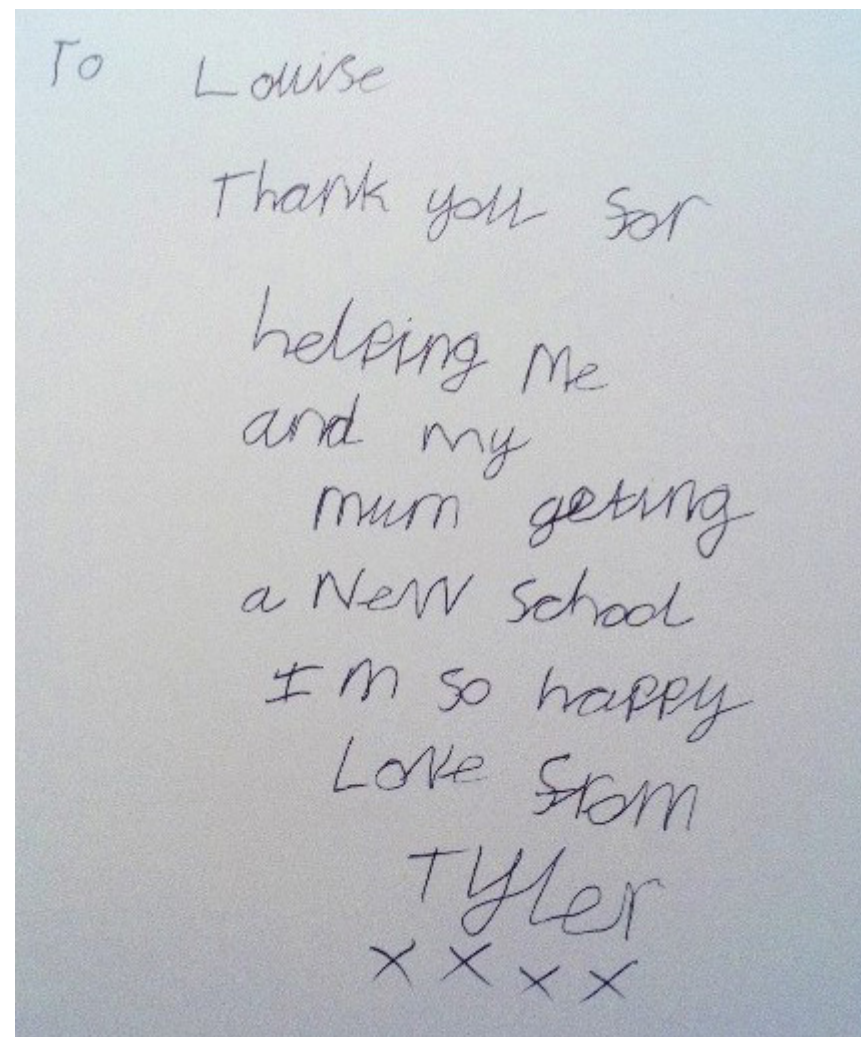 To Louise
Thank you for
helping Me
and my
mum geting
a New School
I m so happy
Love from
Tyler
x x x x